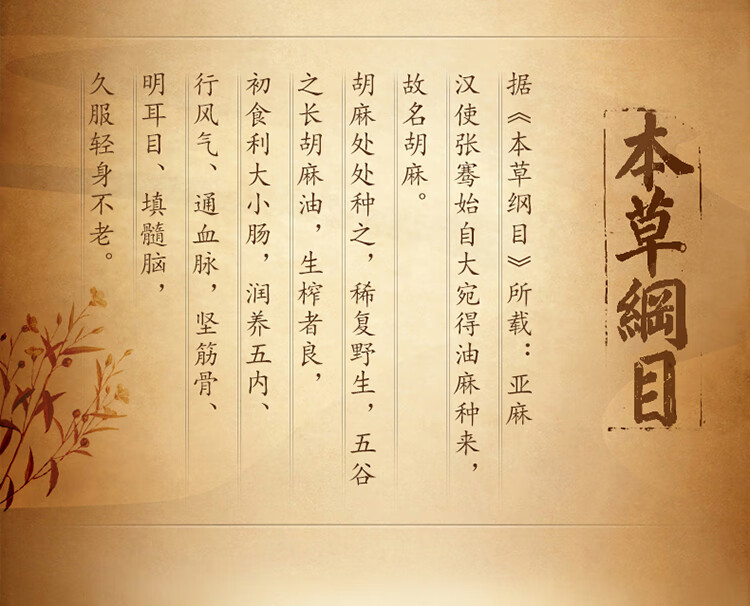 本草綱目
据《本草纲目》所载：亚麻
汉使张骞始自大宛得油麻种来，
故名胡麻。
胡麻处处种之，稀复野生，五谷
之长胡麻油，生榨者良，
初食利大小肠，润养五内、
行风气、通血脉，坚筋骨、
明耳目、填髓脑，
久服轻身不老。